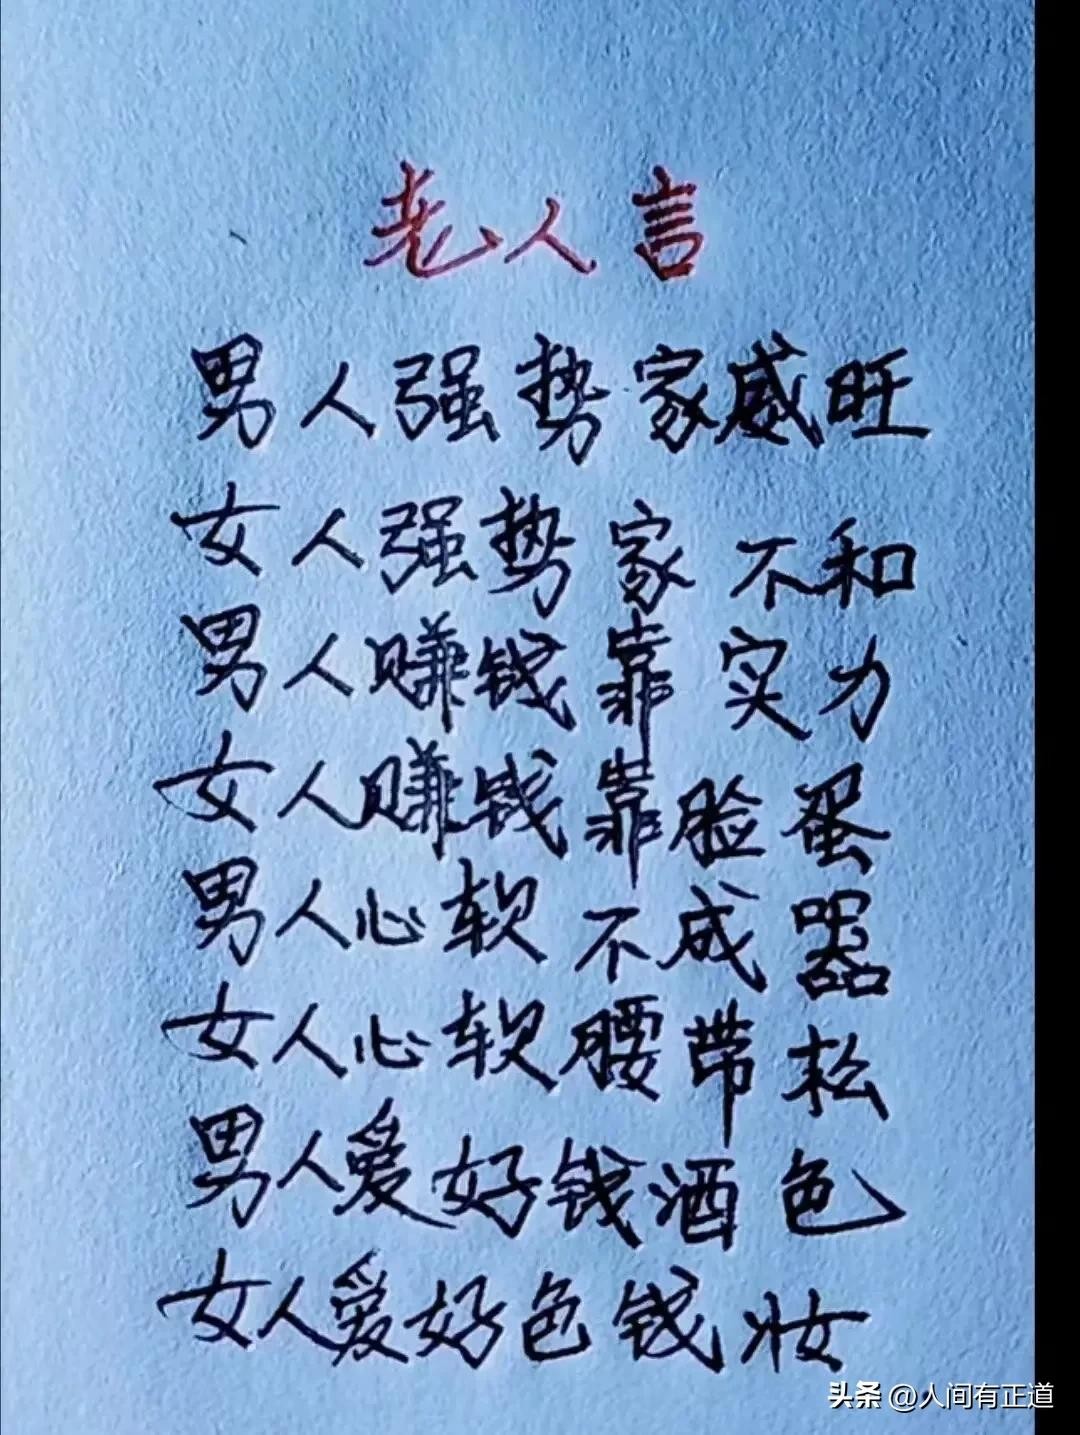 老人言
男人强势家威旺
女人强势家不和
男人赚钱靠实力
女人赚钱靠脸蛋
男人心软不成器
女人心软腰带松
男人爱好钱酒色
女人爱好色钱妆
头条 @人间有正道